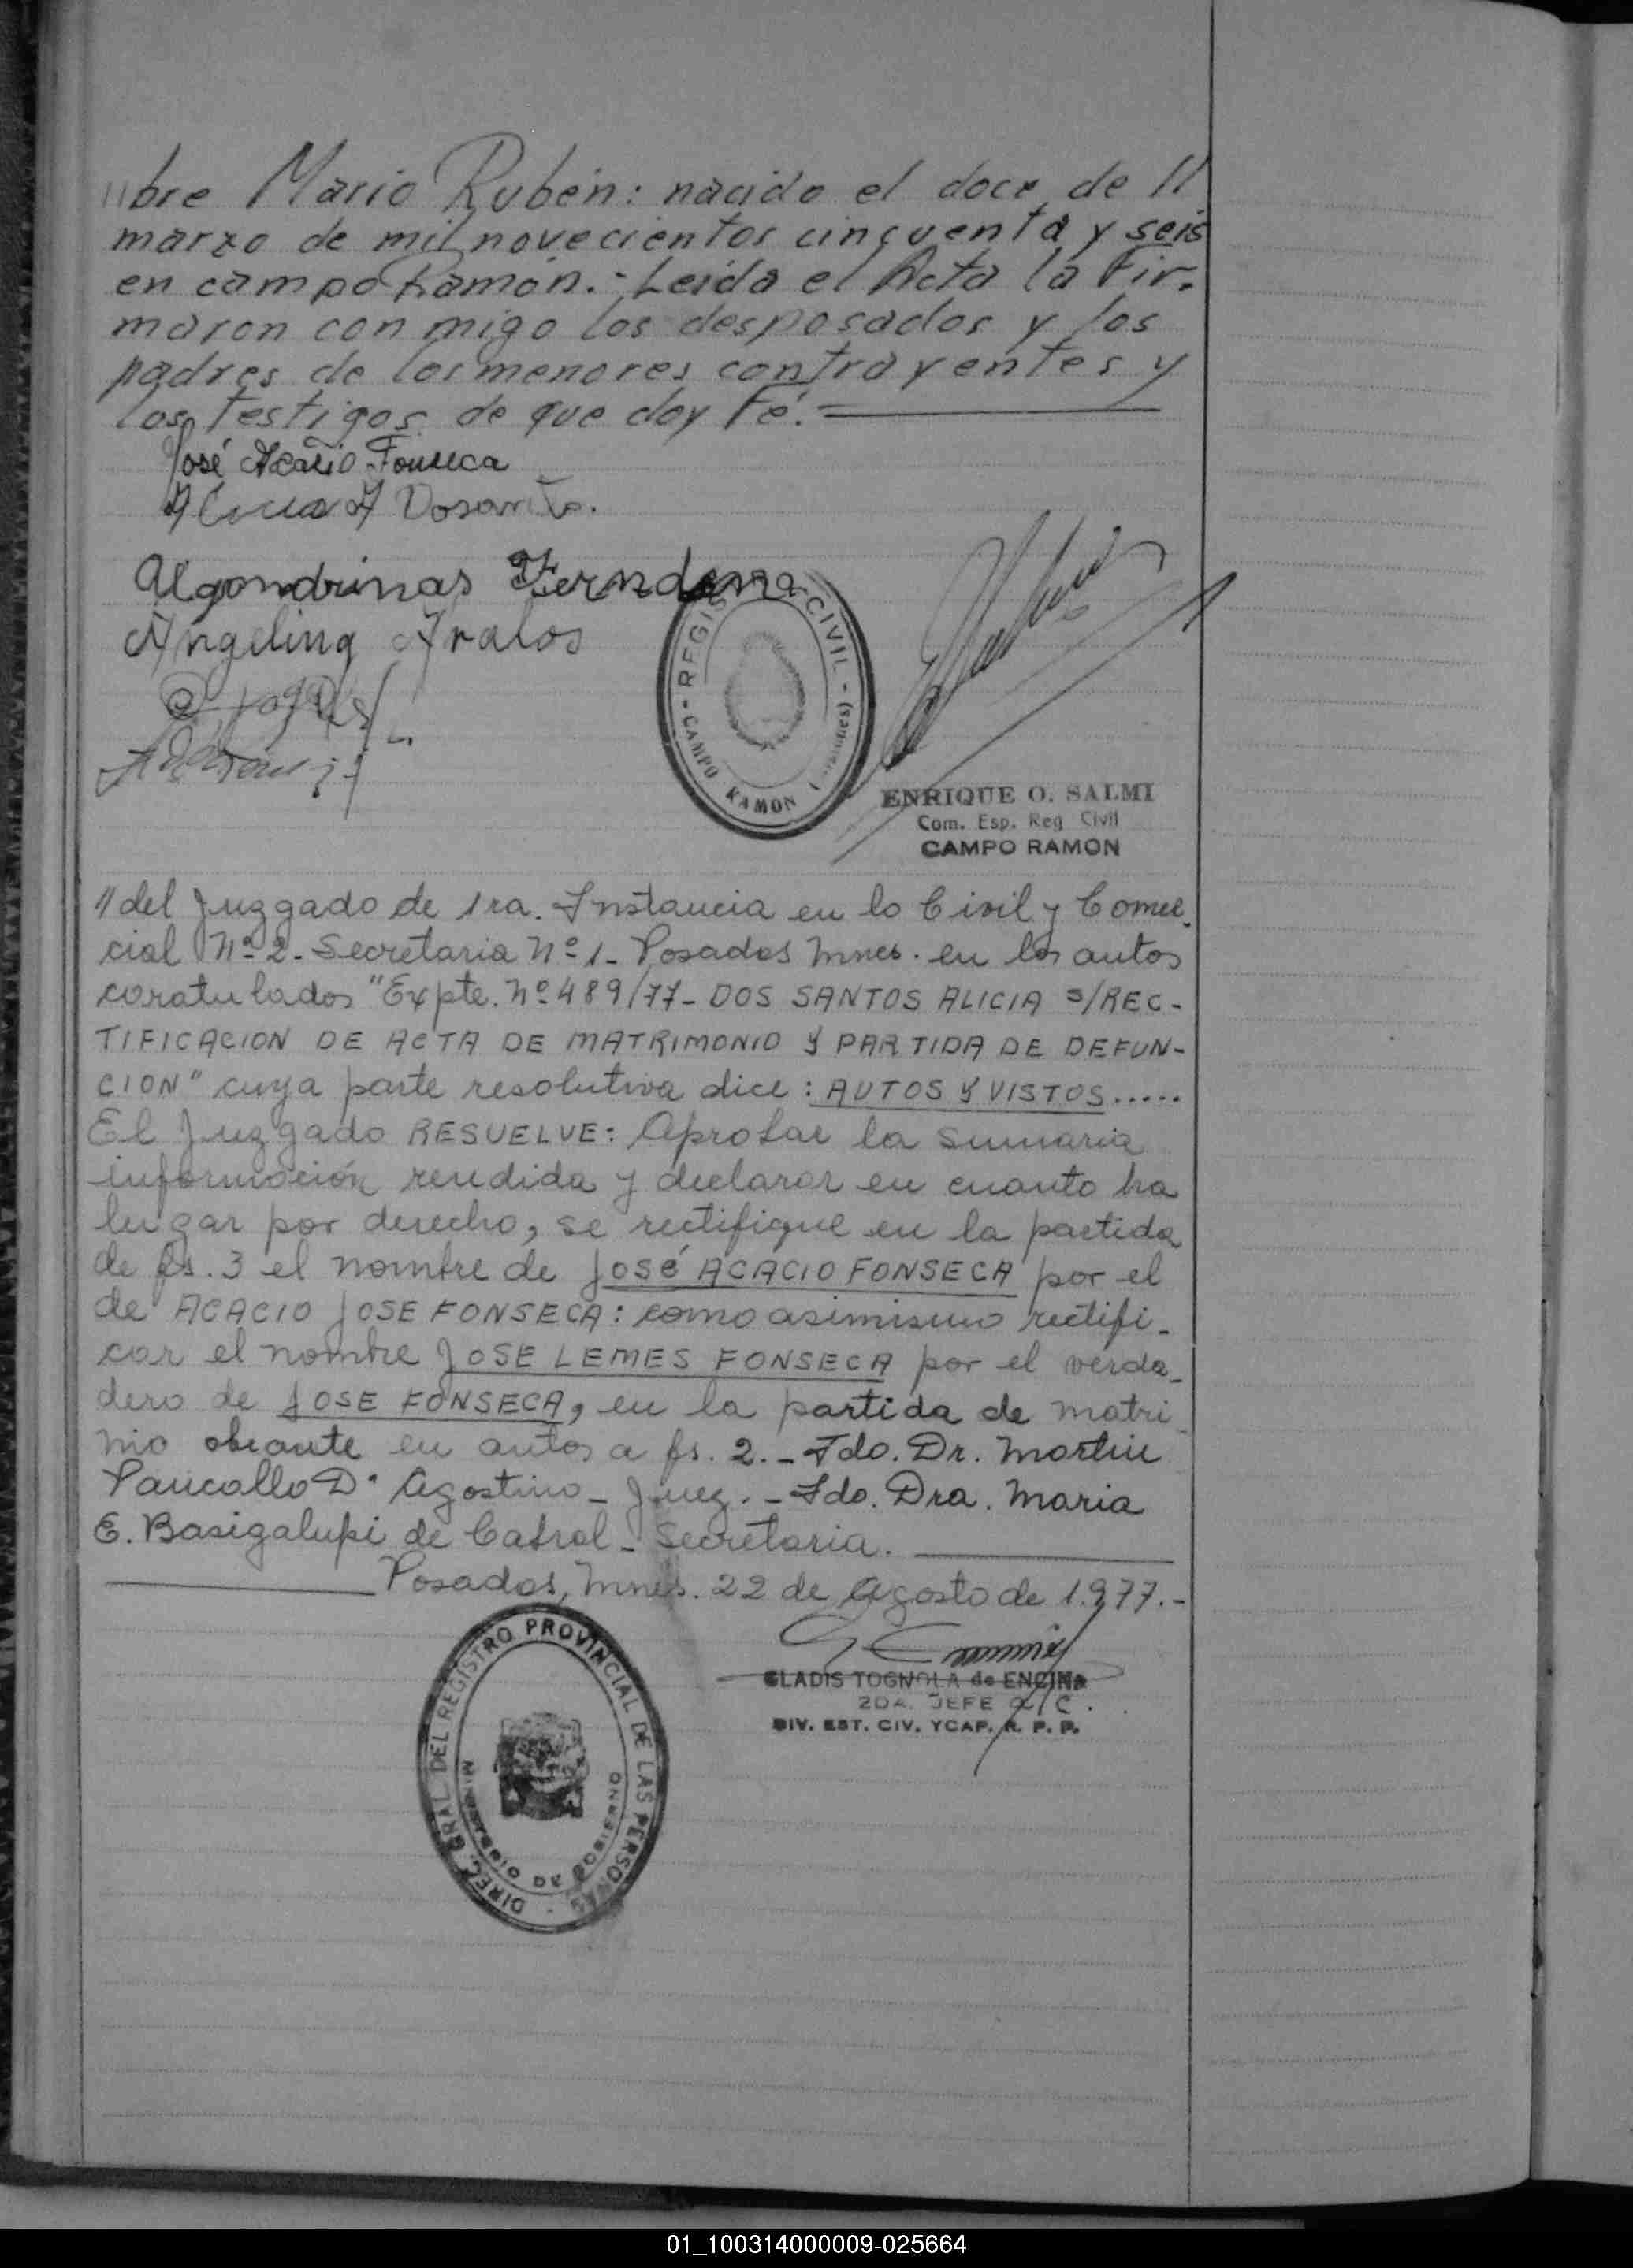 //bre Mario Rubén: nacido el doce de //
marzo de mil novecientos cincuenta y seis
en campo Ramón.- Leída el Acta la Fir-
maron con migo los desposados y los
padres de los menores contrayentes y
los Testigos de que doy Fé.=
José Acasio Fonseca
Alicia A Dosanto.
Algondrinas
Angelina Avalos
REGISTRO CIVIL - CAMPO RAMON (Misiones)
ENRIQUE O. SALMI
Com. Esp. Reg Civil
CAMPO RAMON
// del Juzgado de 1ra. Instancia en lo Civil y Comer-
cial Nº 2- Secretaria Nº 1- Posadas Mnes. en los autos
caratulados "Expte. Nº 489/77- DOS SANTOS ALICIA S/REC-
TIFICACION DE ACTA DE MATRIMONIO Y PARTIDA DE DEFUN-
CION" cuya parte resolutiva dice: AUTOS Y VISTOS.....
El Juzgado RESUELVE: Aprobar la sumaria
información rendida y declarar en cuanto ha
lugar por derecho, se rectifique en la partida
de fs. 3 el nombre de JOSÉ ACACIO FONSECA por el
de ACACIO JOSE FONSECA: como asimismo rectifi-
car el nombre JOSE LEMES FONSECA por el verda-
dero de JOSE FONSECA, en la partida de matri
nio obrante en autos a fs. 2.- Fdo. Dr. Martin
D' Agostino- Juez.- Fdo. Dra. Maria
E. Basigalupi de Cabral- Secretaria.
Posadas, Mnes. 22 de Agosto de 1.977.-
GLADIS TOGNOLA de ENCINA
2DA. JEFE a/c.
DIV. EST. CIV. YCAP. R. P. P.
DIREC. GRAL DEL REGISTRO PROVINCIAL DE LAS PERSONAS -
MINISTERIO DE GOBIERNO
01_100314000009-025664